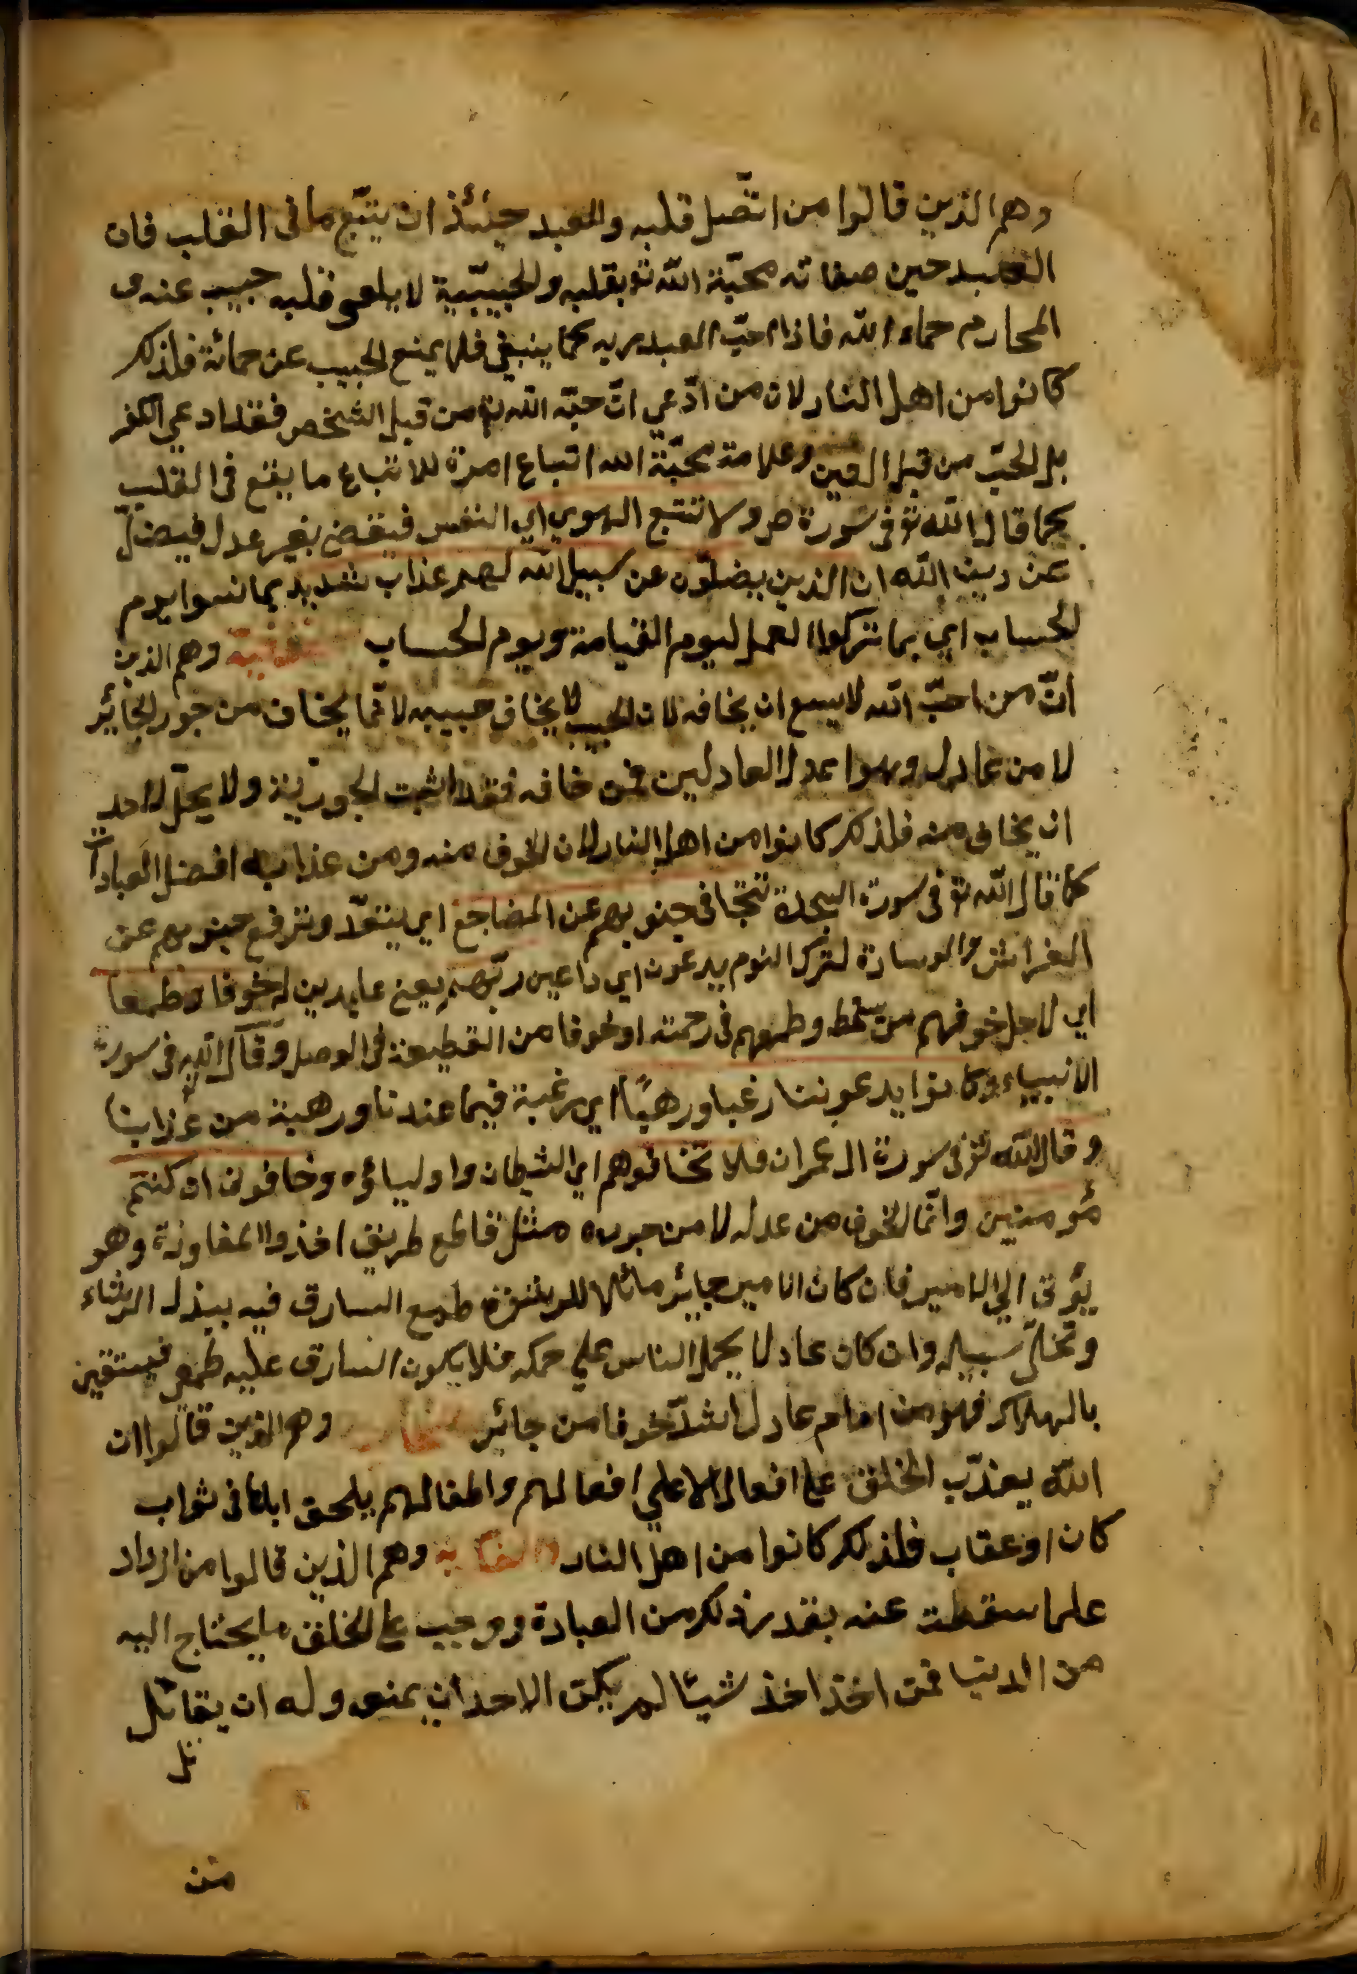 وهم الذين قالوا من اتّصل قلبه والعبد حينئذ ان يتبّع ما فى القلب فان
العبد حين صفاته محبّة الله تع بقلبه والحبيبّية لا قلبه حبيب عنده
المحارم حماء الله فاذا احبّ العبد ربه كما ينبغي فلا يمنع الحبيب عن حمائه فلذلك
كانوا من اهل النار لان من ادّعي انّ حبّه الله تع من قبل الشخص فقد ادعي الكفر
بل الحبّ من قبل العين وعلامة محبّة الله اتباع امره للاتباع ما يقع فى القلب
كما قال الله تع فى سورة ص ولا تتبع الهوي اي النفس فيقض بغير عدل فيضلّ
عن دين الله ان الذين يضلّون عن سبيل الله لهم عذاب شديد بما نسوا يوم
الحساب اي بما تركوا العمل ليوم القيامة ويوم الحساب وهم الذين
انّ من احبّ الله لا يسع ان يخافه لان الحبيب لا يخاف حبيبه لانّما يخاف من جور الجائر
لا من عادل وهو اعدل العادلين فمن خافه فقد اثبت الجورّية ولا يحلّ لاحد
ان يخاف منه فلذلك كانوا من اهل النار لان الخوف منه ومن عذابه افضل العبادات
كما قال الله تع فى سورة السجدة تتجافى جنوبهم عن المضاجع اي وترفع جنوبهم عن
الفراش والوسادة لترك النوم يدعون اي داعين ربّهم يعني عابدين له خوفا وطمعا
اي لاجل خوفهم من سخطه وطمعهم فى رحمته او خوفا من القطيعة فى الوصل وقال الله فى سورة
الانبياء وكانوا يدعوننا رغبا ورهبًا اي رغبة فيما عندنا ورهبة من عذابنا
وقال الله تع فى سورة ال عمران فلا تخافوهم اي الشيطان واولياؤه وخافون ان كنتم
مؤمنين وانّما الخوف من عدله لا من جوره مثل قاطع طريق اخذوا المفاوزة وهو
يؤتى الي الامير فان كان الامير جائر مائلا للرشوة طمع السارق فيه ببذل الرشاء
وتخلّى سبيله وان كان عادلا يحمل الناس علي حكمه فلا يكون السارق عليه طمعى فيستقين
بالهلاك فهو من امام عادل اشدّ خوفا من جائر وهم الذين قالوا ان
الله يعذّب الخلق على افعاله لا علي افعالهم واطفالهم يلحق ابائا فى ثواب
كان او عقاب فلذلك كانوا من اهل النار وهم الذين قالوا من ازداد
علما سقطت عنه بقدر ذلك من العبادة ووجب على الخلق ما يحتاج اليه
من الدنيا فمن اخذ اخذ شيئا لم يكن الاحد ان يمنعه وله ان يقاتل
تل
متن